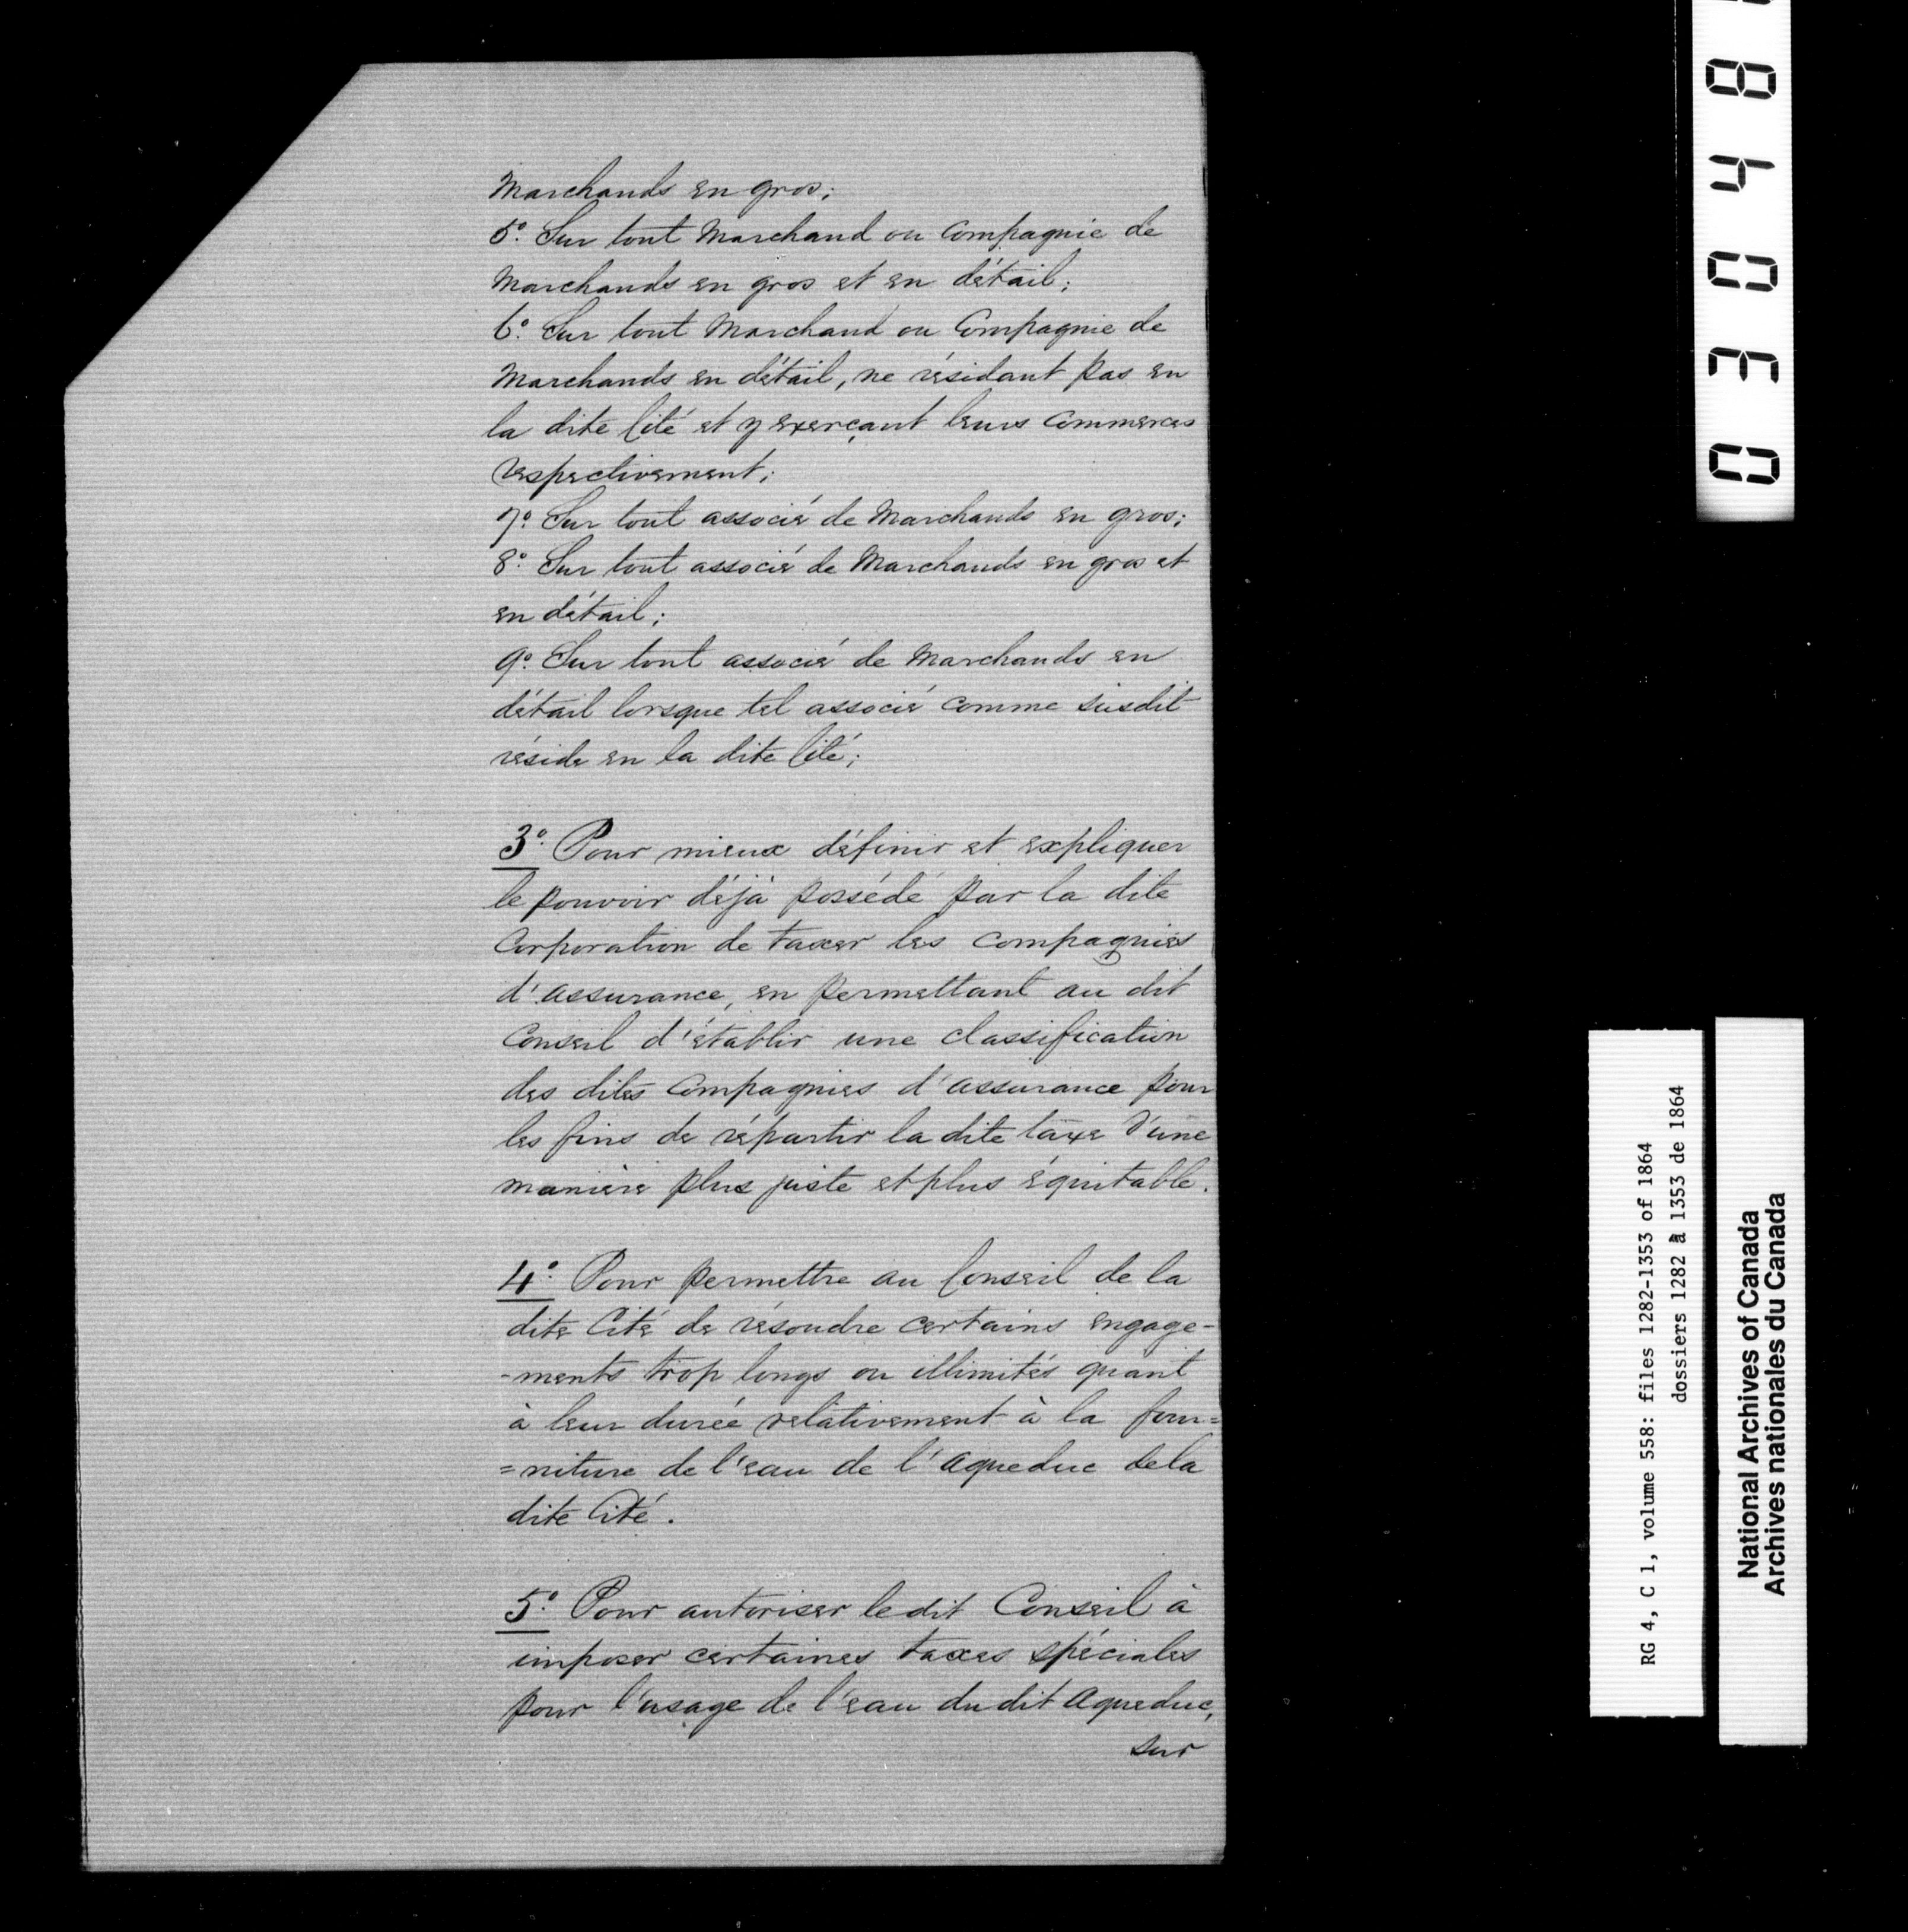 Marchands en gros;
5º. Sur tout Marchand ou Compagnie de
Marchands en gros et en détail;
6º. Sur tout Marchand ou Compagnie de
Marchands en détail, ne résidant pas en
la dite Cité et y exerçant leurs Commerces
respectivement;
7º. Sur tout associé de Marchands en gros;
8º. Sur tout associé de Marchands en gros et
en détail;
9º. Sur tout associé de Marchands en
détail lorsque tel associé comme susdit
réside en la dite Cité;
3º. Pour mieux définir et expliquer
le pouvoir déjà possédé par la dite
Corporation de taxer les compagnies
d'assurance, en permettant au dit
Conseil d'établir une classification
des dites Compagnies d'assurance pour
les fins de répartir la dite taxe d'une
manière plus juste et plus équitable.
4º. Pour permettre au Conseil de la
dite Cité de résoudre certains engage-
-ments trop longs ou illimités quant
à leur durée relativement à la four=
=niture de l'eau de l'Aqueduc de la
dite Cité.
5º. Pour autoriser le dit Conseil à
imposer certaines taxes spéciales
pour l'usage de l'eau du dit Aqueduc,
sur
0 3 0 4 8
RG 4, C 1, volume 558: files 1282-1353 of 1864
dossiers 1282 à 1353 de 1864
National Archives of Canada
Archives nationales du Canada